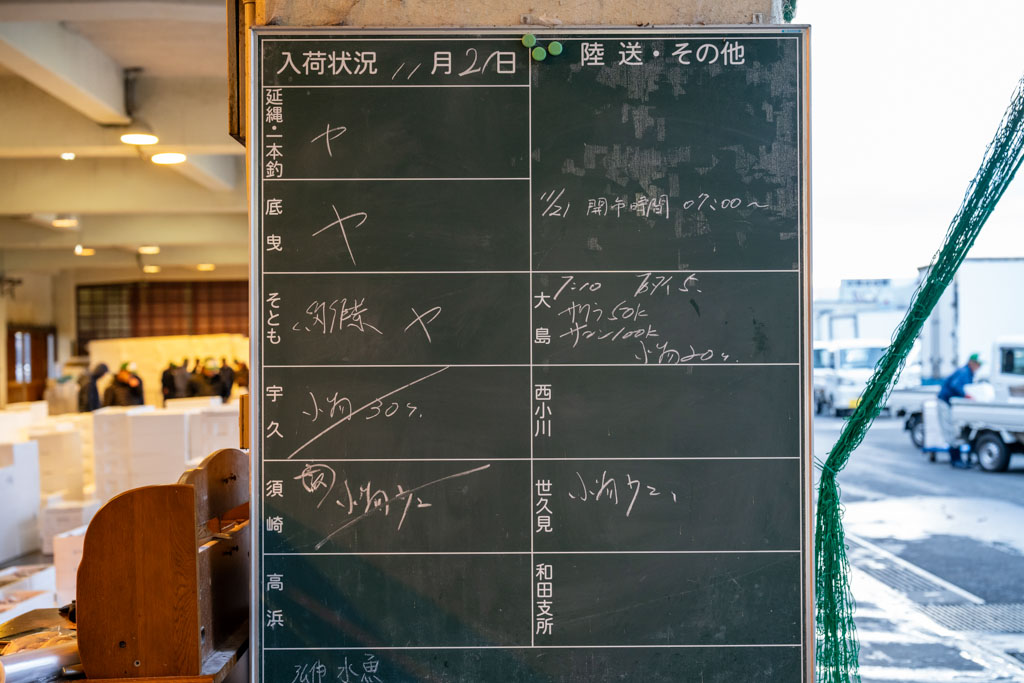 入荷状況 11月21日
陸送・その他
延縄・一本釣
ヤ
11/21 開市時間 07:00〜
底曳
ヤ
そとも
ヤ
大島
7:10
サワラ 50k
100k
小物 20ケ.
宇久
小物 30ケ.
西小川
須崎
小物
世久見
小物
高浜
和田支所
水魚